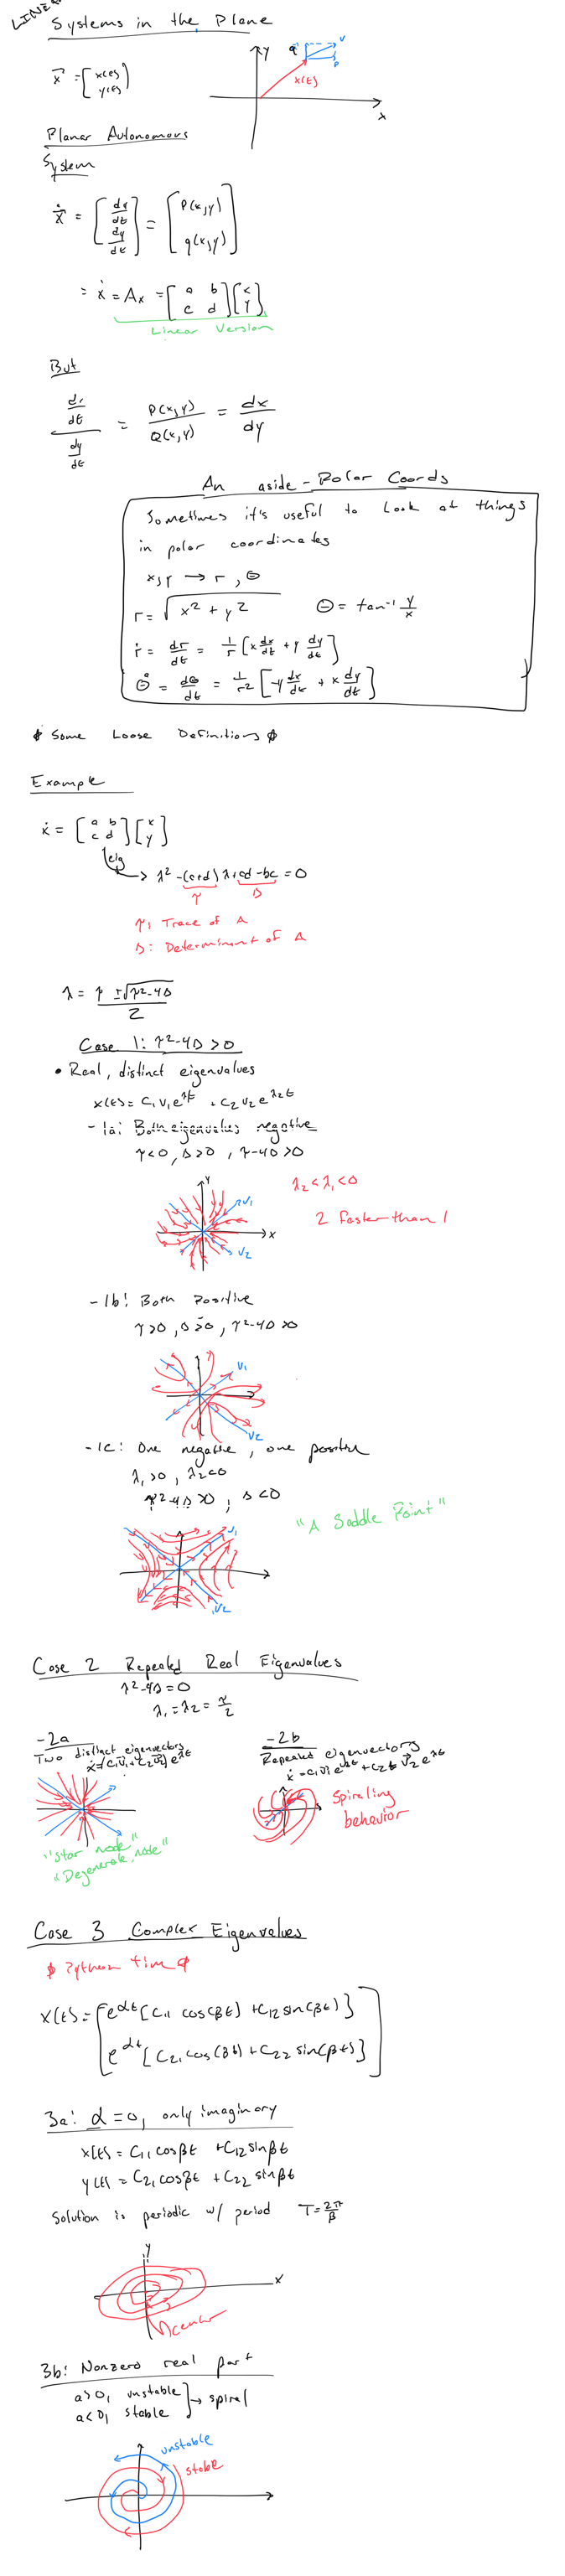 LINE
Systems in the Plane
x = [x(t) y(t)]
q v
x(t) p
y
x
Planar Autonomous
System
ẋ = [dx/dt dy/dt] = [P(x,y) q(x,y)]
= ẋ = Ax = [a b c d][x y]
Linear Version
But
dx/dt / dy/dt = P(x,y)/Q(x,y) = dx/dy
An aside - Polar Coords
Sometimes it's useful to Look at things
in polar coordinates
x,y → r, θ
r = √x² + y² θ = tan⁻¹ y/x
ṙ = dr/dt = 1/r [x dx/dt + y dy/dt]
θ̇ = dθ/dt = 1/r² [-y dx/dt + x dy/dt]
Some Loose Definitions
Example
ẋ = [a b c d][x y]
eig
→ λ² -(a+d)λ + ad-bc = 0
τ Δ
τ: Trace of A
Δ: Determinant of A
λ = τ ± √τ²-4Δ / 2
Case 1: τ²-4Δ > 0
• Real, distinct eigenvalues
x(t) = C₁ v₁ e^λt + C₂ v₂ e^λ₂t
- 1a: Both eigenvalues negative
τ<0, Δ>0, τ-4Δ>0
y v₁
x
v₂
λ₂ < λ₁ < 0
2 faster than 1
- 1b: Both Positive
τ>0, Δ>0, τ²-4Δ>0
v₁
v₂
- 1c: One negative, one positive
λ₁>0, λ₂<0
τ²-4Δ>0, Δ<0
"A Saddle Point"
v₁
v₂
Case 2 Repeated Real Eigenvalues
λ²-4Δ = 0
λ₁ = λ₂ = τ/2
- 2a
Two distinct eigenvectors
ẋ = (C₁v₁ + C₂v₂) e^λt
"Star node"
"Degenerate node"
- 2b
Repeated eigenvectors
ẋ = C₁v₁e^λt + C₂t v₂ e^λt
Spiraling
behavior
Case 3 Complex Eigenvalues
Python time
x(t) = [e^αt [C₁₁ cos(βt) + C₁₂ sin(βt)]
e^αt [C₂₁ cos(βt) + C₂₂ sin(βt)]]
3a: α = 0, only imaginary
x(t) = C₁₁ cosβt + C₁₂ sinβt
y(t) = C₂₁ cosβt + C₂₂ sinβt
Solution is periodic w/ period T = 2π/β
y
x
center
3b: Nonzero real part
a>0, unstable
a<0, stable
→ spiral
unstable
stable